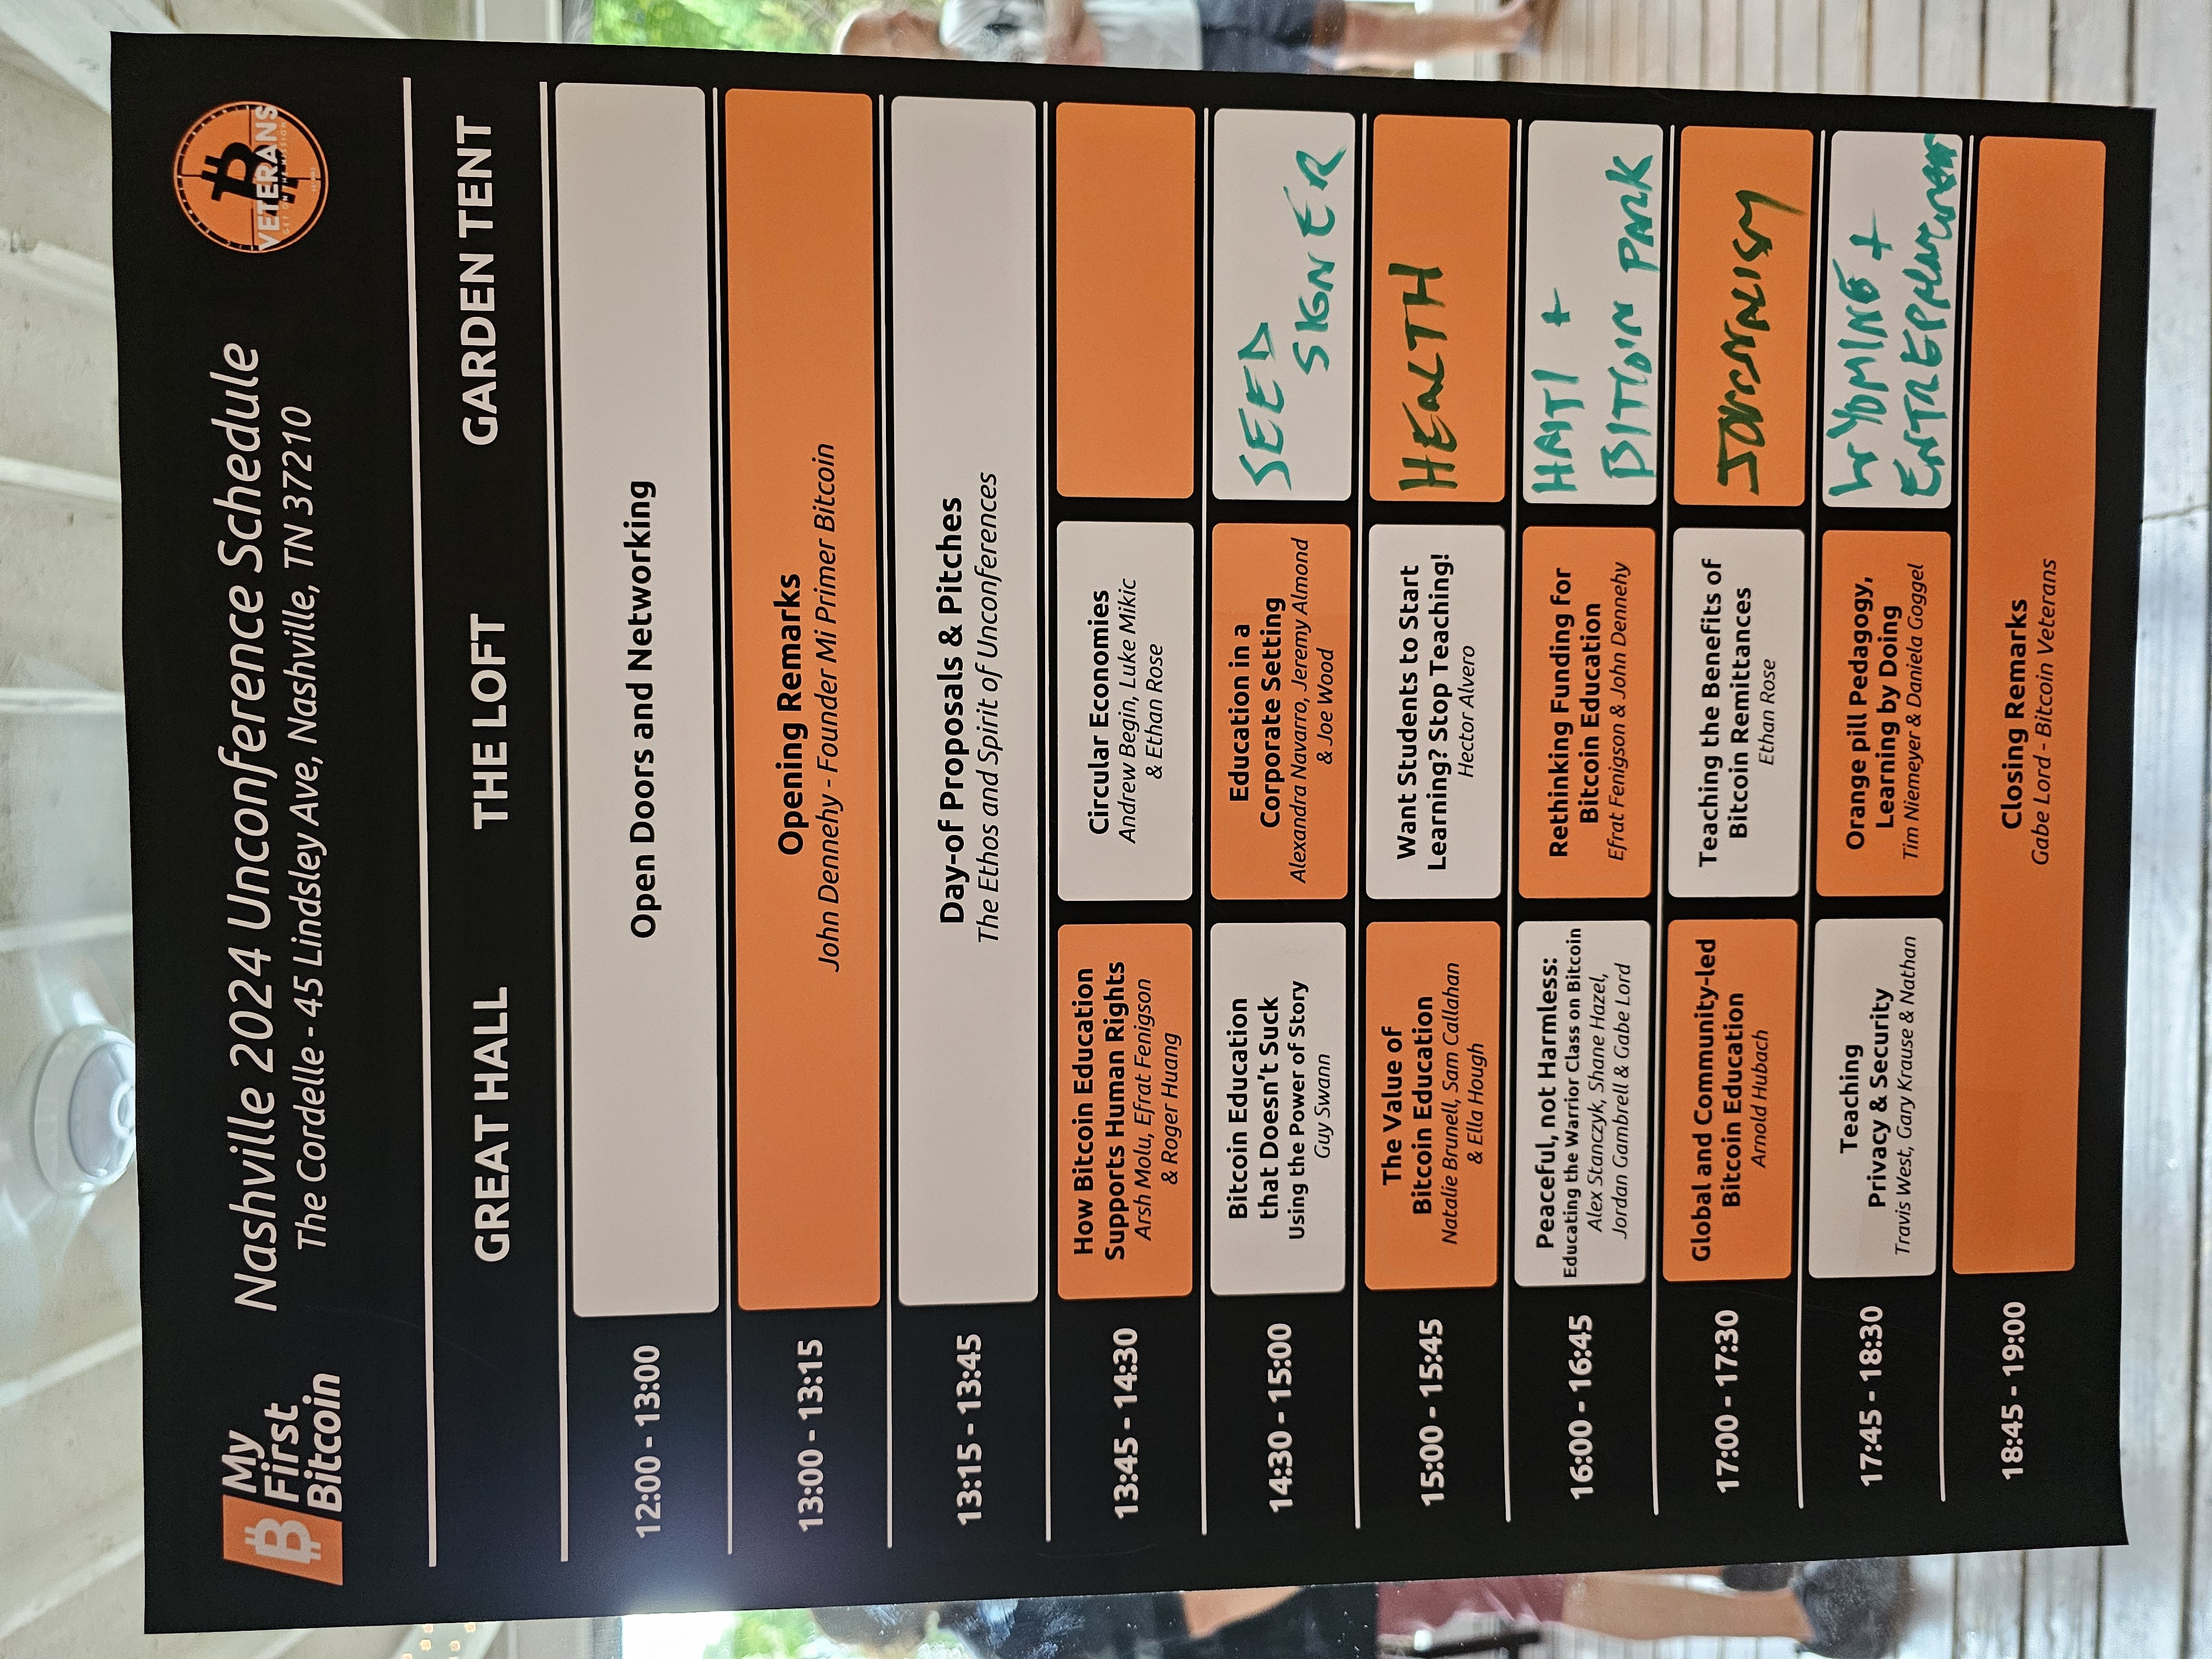 My
First
Bitcoin
Nashville 2024 Unconference Schedule
The Cordelle - 45 Lindsley Ave, Nashville, TN 37210
VETERANS
GET ON THE MISSION
GREAT HALL
THE LOFT
GARDEN TENT
12:00 - 13:00
Open Doors and Networking
13:00 - 13:15
Opening Remarks
John Dennehy - Founder Mi Primer Bitcoin
13:15 - 13:45
Day-of Proposals & Pitches
The Ethos and Spirit of Unconferences
13:45 - 14:30
How Bitcoin Education
Supports Human Rights
Arsh Molu, Efrat Fenigson
& Roger Huang
Circular Economies
Andrew Begin, Luke Mikic
& Ethan Rose
14:30 - 15:00
Bitcoin Education
that Doesn't Suck
Using the Power of Story
Guy Swann
Education in a
Corporate Setting
Alexandra Navarro, Jeremy Almond
& Joe Wood
SEED
SIGNER
15:00 - 15:45
The Value of
Bitcoin Education
Natalie Brunell, Sam Callahan
& Ella Hough
Want Students to Start
Learning? Stop Teaching!
Hector Alvero
HEALTH
16:00 - 16:45
Peaceful, not Harmless:
Educating the Warrior Class on Bitcoin
Alex Stanczyk, Shane Hazel,
Jordan Gambrell & Gabe Lord
Rethinking Funding for
Bitcoin Education
Efrat Fenigson & John Dennehy
HAITI +
BITCOIN PARK
17:00 - 17:30
Global and Community-led
Bitcoin Education
Arnold Hubach
Teaching the Benefits of
Bitcoin Remittances
Ethan Rose
JOURNALISM
17:45 - 18:30
Teaching
Privacy & Security
Travis West, Gary Krause & Nathan
Orange pill Pedagogy,
Learning by Doing
Tim Niemeyer & Daniela Goggel
WYOMING +
18:45 - 19:00
Closing Remarks
Gabe Lord - Bitcoin Veterans